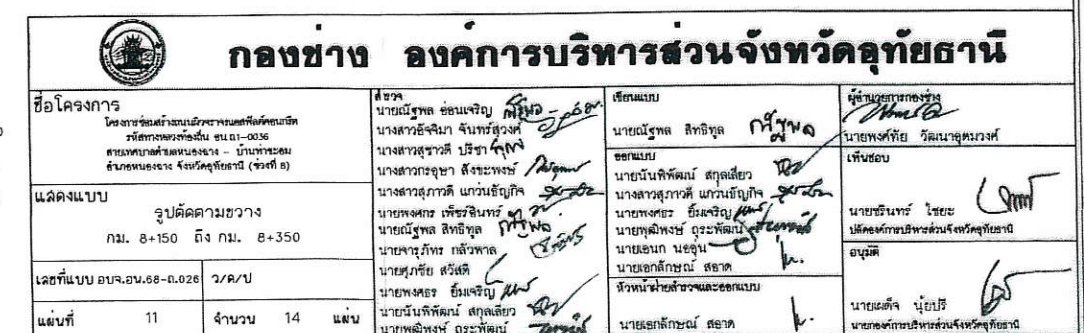 กองช่าง องค์การบริหารส่วนจังหวัดอุทัยธานี
ชื่อโครงการ
โครงการซ่อมสร้างถนนผิวจราจรแอสฟัลท์คอนกรีต
รหัสทางหลวงท้องถิ่น อน.ถ1-0036
สายเทศบาลตำบลหนองฉาง - บ้านท่าชะอม
อำเภอหนองฉาง จังหวัดอุทัยธานี (ช่วงที่ 8)
แสดงแบบ
รูปตัดตามขวาง
กม. 8+150 ถึง กม. 8+350
เลขที่แบบ อบจ.อน.68-ถ.026 ว/ด/ป
แผ่นที่ 11 จำนวน 14 แผ่น
สำรวจ
นายณัฐพล อ่อนเจริญ
นางสาวอัจจิมา จันทร์สุวงศ์
นางสาวสุชาวดี ปรีชา
นางสาวกรอุษา สังขะพงษ์
นางสาวสุภาวดี แกว่นธัญกิจ
นายพงศกร เพ็ชรอินทร์
นายณัฐพล สิทธิทูล
นายจารุภัทร กล้วหาล
นายศุภชัย สวัสดี
นายพงศธร ยิ้มเจริญ
นายนันพิพัฒน์ สกุลเสี่ยว
นายพุฒิพงษ์ ถุระพัฒน์
เขียนแบบ
นายณัฐพล สิทธิทูล
ออกแบบ
นายนันพิพัฒน์ สกุลเสี่ยว
นางสาวสุภาวดี แกว่นธัญกิจ
นายพงศธร ยิ้มเจริญ
นายพุฒิพงษ์ ถุระพัฒน์
นายเอนก นออุ่น
นายเอกลักษณ์ สอาด
หัวหน้าฝ่ายสำรวจและออกแบบ
นายเอกลักษณ์ สอาด
ผู้อำนวยการกองช่าง
นายพงศ์ทัย วัฒนาอุดมวงศ์
เห็นชอบ
นายชรินทร์ ไชยะ
ปลัดองค์การบริหารส่วนจังหวัดอุทัยธานี
อนุมัติ
นายเผด็จ นุ้ยปรี
นายกองค์การบริหารส่วนจังหวัดอุทัยธานี